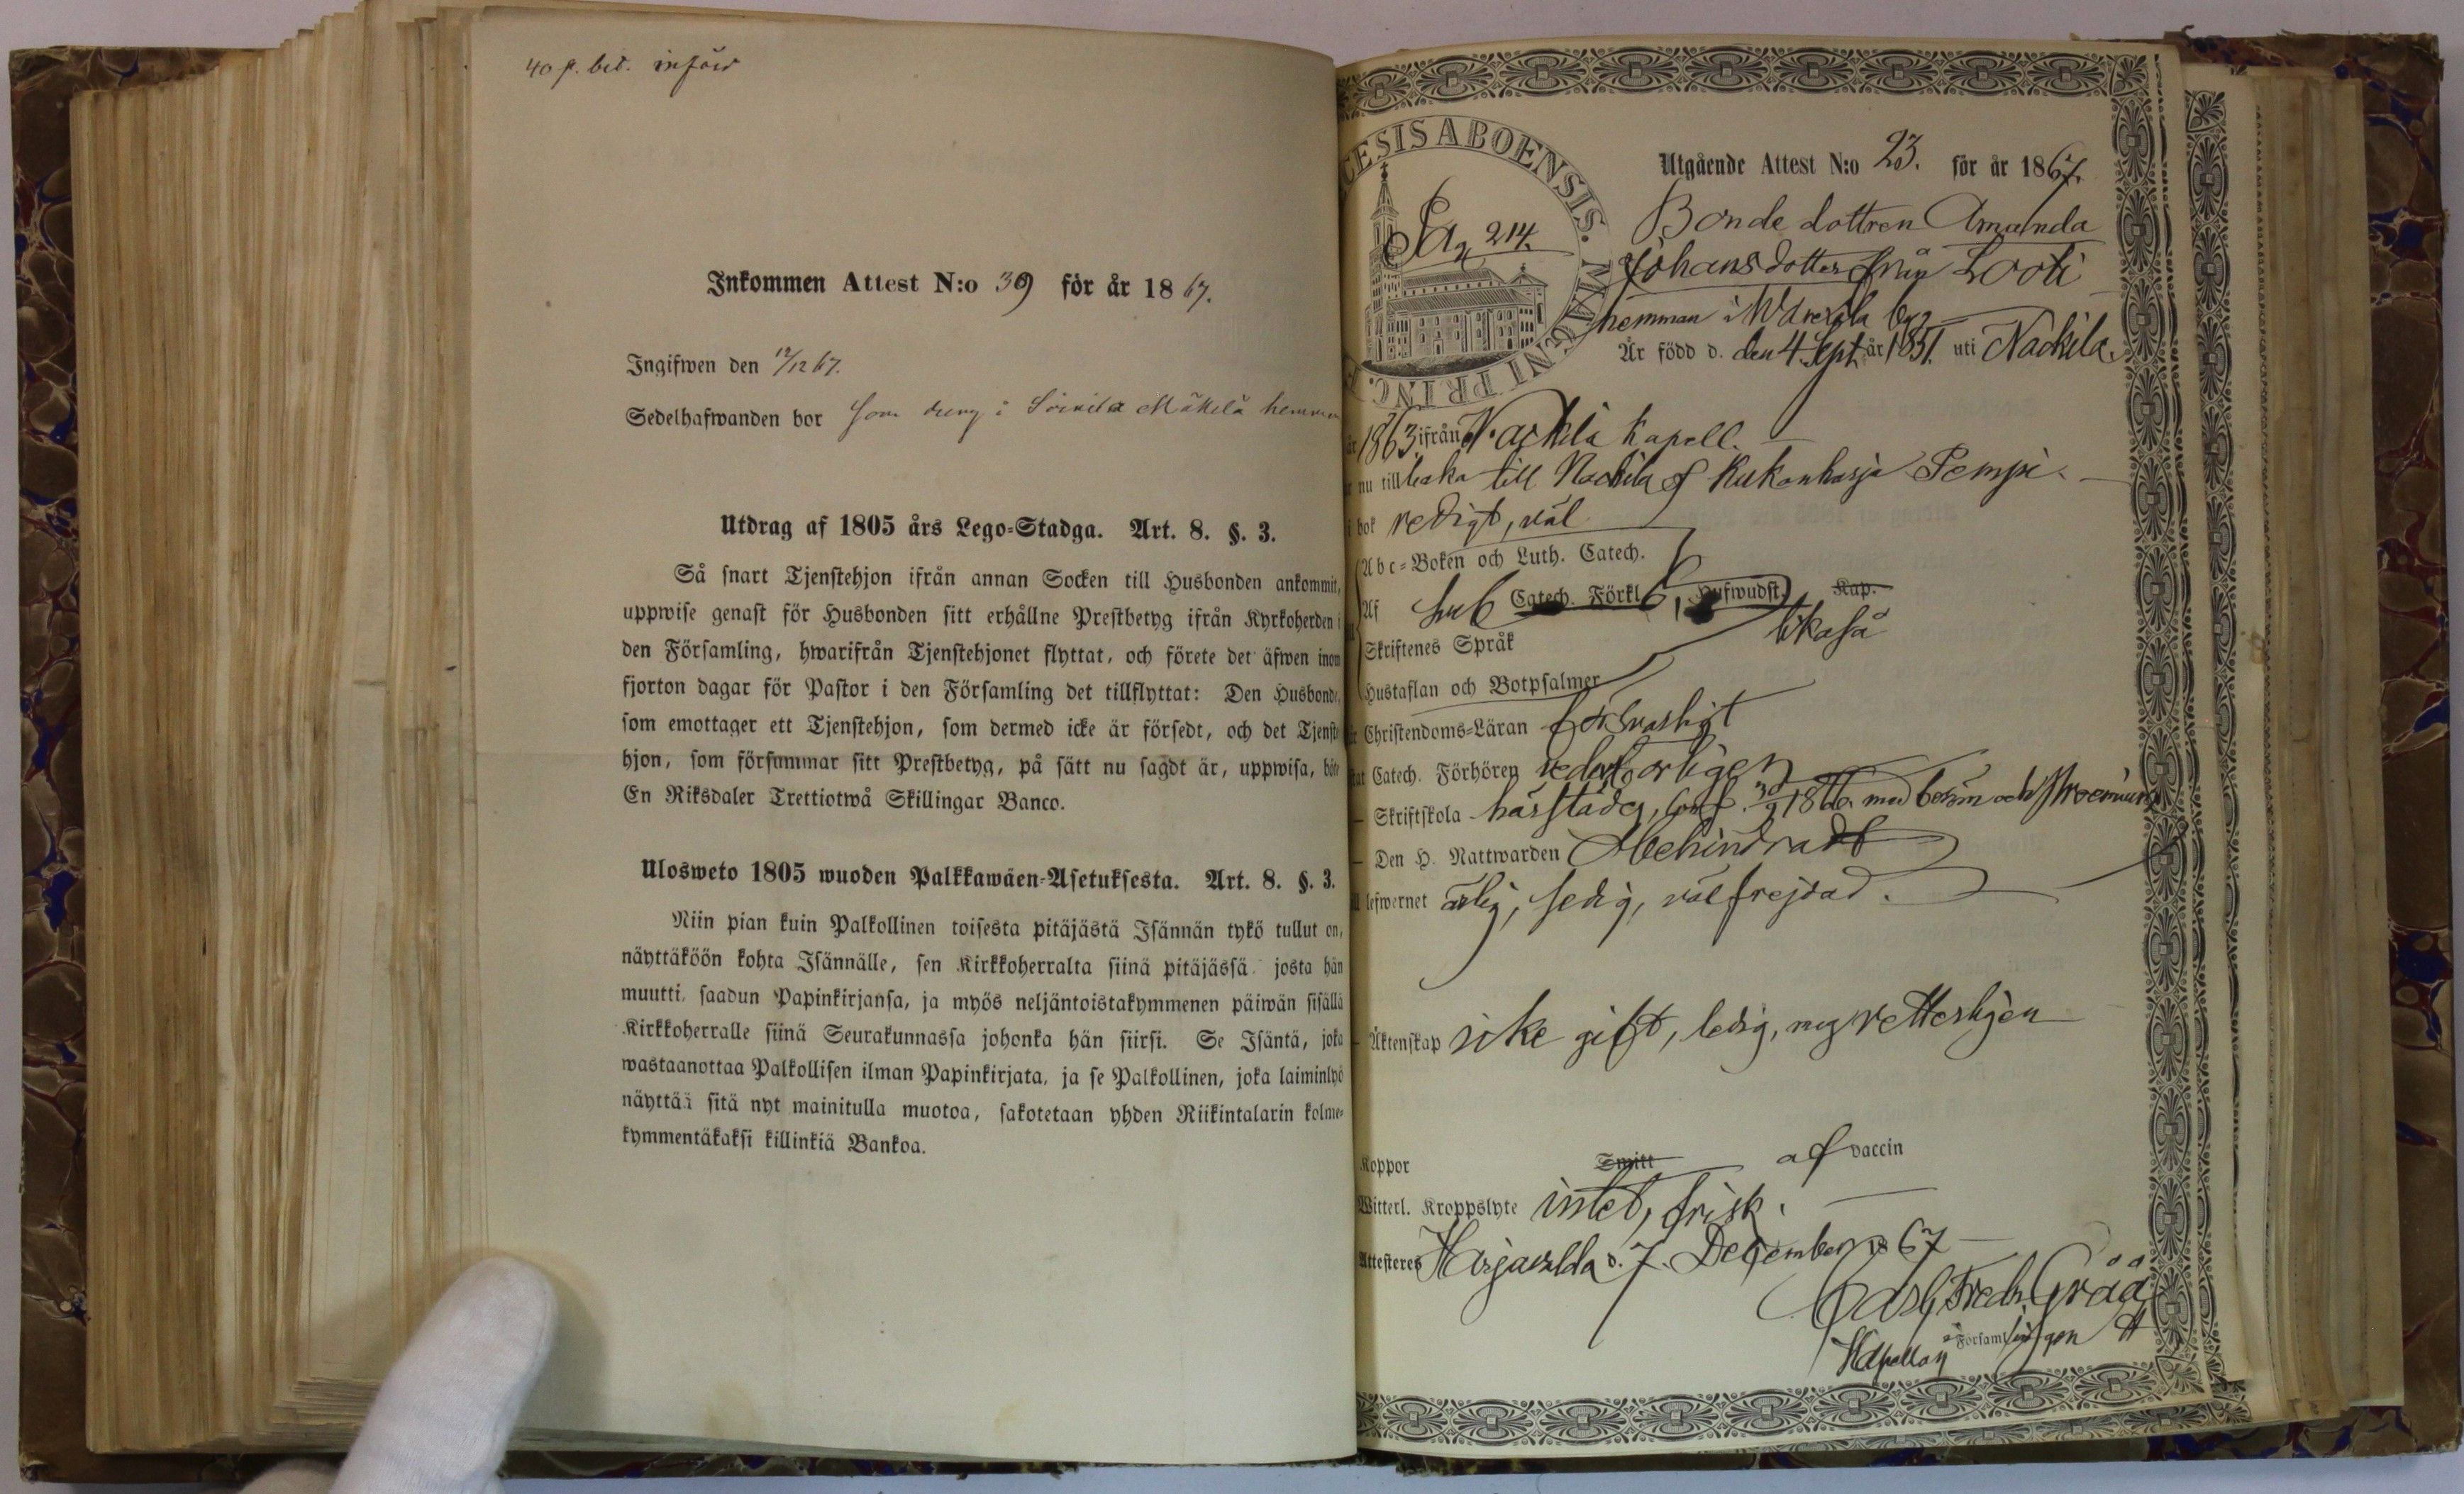 40 p. bet. införd
Inkommen Attest N:o 39 för år 1867.
Ingifwen den 12/12 67.
Sedelhafwanden bor som dreng i Mäkelä hemman
Utdrag af 1805 års Lego-Stadga. Art. 8. §. 3.
Så snart Tjenstehjon ifrån annan Socken till Husbonden ankommit,
uppwise genast för Husbonden sitt erhållne Prestbetyg ifrån Kyrkoherden i
den Församling, hwarifrån Tjenstehjonet flyttat, och förete det äfwen inom
fjorton dagar för Pastor i den Församling det tillflyttat: Den Husbonde,
som emottager ett Tjenstehjon, som dermed icke är försedt, och det Tjenste
hjon, som försummar sitt Prestbetyg, på sätt nu sagdt är, uppwisa, böte
En Riksdaler Trettiotwå Skillingar Banco.
Ulosweto 1805 wuoden Palkkawäen-Asetuksesta. Art. 8. §. 3.
Niin pian kuin Palkollinen toisesta pitäjästä Isännän tykö tullut on,
näyttäköön kohta Isännälle, sen Kirkkoherralta siinä pitäjässä josta hän
muutti, saadun Papinkirjansa, ja myös neljäntoistakymmenen päiwän sisällä
Kirkkoherralle siinä Seurakunnassa johonka hän siirsi. Se Isäntä, joka
wastaanottaa Palkollisen ilman Papinkirjata, ja se Palkollinen, joka laiminlyö
näyttää sitä nyt mainitulla muotoa, sakotetaan yhden Riikintalarin kolme-
kymmentäkaksi killinkiä Bankoa.
CESIS ABOENSIS. MAGNI PRINC.
Pag 214.
Utgående Attest N:o 23. för år 1867.
Bonde dottren Amanda
Johansdotter från Looti
hemman i by
Är född d. den 4 Sept. år 1851. uti Nackila.
år 1863 ifrån Nackila Kapell.
nu tillbaka till Nackila Kukonharja Tempi.
i bok redigt, väl
Abc-Boken och Luth. Catech.
Af Catech. Förkl. 6, Hufwudst. Kap.
likaså
Skriftenes Språk
Hustaflan och Botpsalmer
Christendoms-Läran försvarligt
Catech. Förhören vederbörligen
Skriftskola härstädes, conf. 30/9 1866. med beröm och
Den H. Nattwarden obehindradt
lefwernet ärlig, sedig, välfrejdad.
Äktenskap icke gift, ledig, mig vetterligen
Koppor Smitt af vaccin
Witterl. Kroppslyte intet, frisk.
Attesteres Harjavalda d. 7. December 1867
Carl Fredr. Gråå
Kapellan Församlingen